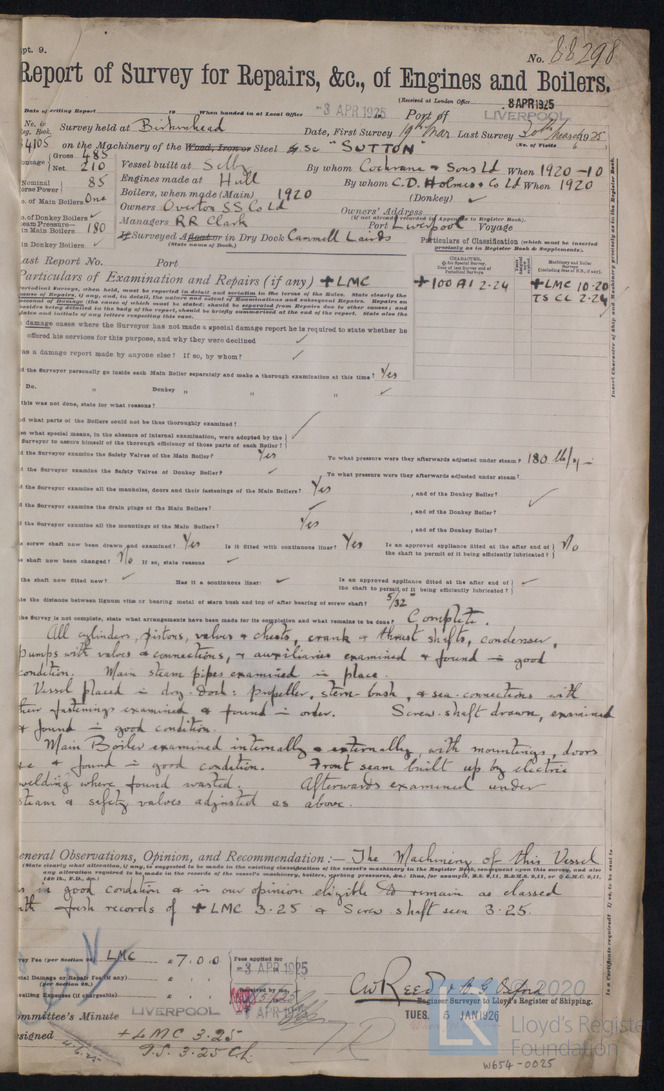 pt. 9.
No. 88298
Report of Survey for Repairs, &c., of Engines and Boilers.
(Received at London Office 8 APR 1925
Date of writing Report 19 When handed in at Local Office -3 APR 1925 Port of LIVERPOOL
No. in Reg. Book. Survey held at Birkenhead Date, First Survey 19th Mar. Last Survey 1925
(No. of Visits 6)
4105 on the Machinery of the Wood, Iron or Steel S.Sc "SUTTON"
Tonnage Gross 485
Net 210 Vessel built at Selby By whom Cochrane & Sons Ld When 1920-10
Nominal Horse Power 85 Engines made at Hull By whom C.D. Holmes & Co Ld When 1920
No. of Main Boilers One Boilers, when made (Main) 1920 (Donkey) ✓
No. of Donkey Boilers ✓ Owners Overton SS Co Ld Owners' Address
(If not already recorded in Appendix to Register Book).
Steam Pressure in Main Boilers 180 Managers RR Clark Port Liverpool Voyage
in Donkey Boilers ✓ If Surveyed Afloat or in Dry Dock Cammell Lairds
(State name of Dock.)
Particulars of Classification (which must be inserted precisely as in Register Book & Supplements).
Last Report No. Port
Particulars of Examination and Repairs (if any) +LMC
+100 A1 2-24
+LMC 10-20
TS CL 2-24
damage cases where the Surveyor has not made a special damage report he is required to state whether he
offered his services for this purpose, and why they were declined ✓
as a damage report made by anyone else? If so, by whom? ✓
d the Surveyor personally go inside each Main Boiler separately and make a thorough examination at this time? Yes
Do. " Donkey " " ✓
this was not done, state for what reasons?
d what parts of the Boilers could not be thoroughly examined?
so what special means, in the absence of internal examination, were adopted by the
Surveyor to assure himself of the thorough efficiency of those parts of each Boiler? ✓
d the Surveyor examine the Safety Valves of the Main Boiler? Yes To what pressure were they afterwards adjusted under steam? 180 lb/
d the Surveyor examine the Safety Valves of Donkey Boiler? ✓ To what pressure were they afterwards adjusted under steam?
d the Surveyor examine all the manholes, doors and their fastenings of the Main Boilers? Yes , and of the Donkey Boiler? ✓
d the Surveyor examine the drain plugs of the Main Boilers? ✓ , and of the Donkey Boiler?
d the Surveyor examine all the mountings of the Main Boilers? Yes , and of the Donkey Boiler?
s screw shaft now been drawn and examined? Yes Is it fitted with continuous liner? Yes Is an approved appliance fitted at the after end of the shaft to permit of it being efficiently lubricated? No
s shaft now been changed? No If so, state reasons ✓
the shaft now fitted new? ✓ Has it a continuous liner? ✓ Is an approved appliance fitted at the after end of the shaft to permit of it being efficiently lubricated? ✓
te the distance between lignum vitæ or bearing metal of stern bush and top of after bearing of screw shaft? 5/32"
the Survey is not complete, state what arrangements have been made for its completion and what remains to be done? Complete.
All cylinders, pistons, valves & chests, crank & thrust shafts, condenser,
pumps with valves & connections, & auxiliaries examined & found in good
condition. Main steam pipes examined in place.
Vessel placed in dry dock: propeller, stern-bush, & sea-connections with
their fastenings examined & found in order. Screw shaft drawn, examined
& found in good condition.
Main Boiler examined internally & externally, with mountings, doors
&c & found in good condition. Front seam built up by electric
welding where found wasted. Afterwards examined under
steam & safety valves adjusted as above.
General Observations, Opinion, and Recommendation:— The Machinery of this Vessel
is in good condition & in our opinion eligible to remain as classed
with fresh records of +LMC 3.25 & Screw shaft seen 3.25.
Survey Fee (per Section 28) LMC £7.0.0
Fees applied for
-3 APR 1925
Special Damage or Repair Fee (if any)
(per Section 28.)
Travelling Expenses (if chargeable)
Received by me,
C W Reed
Engineer Surveyor to Lloyd's Register of Shipping.
Committee's Minute LIVERPOOL APR 1925 TUES. 5 JAN 1926
Assigned +LMC 3.25
T.S. 3.25 CL
2020
Lloyd's Register
Foundation
W654-0025